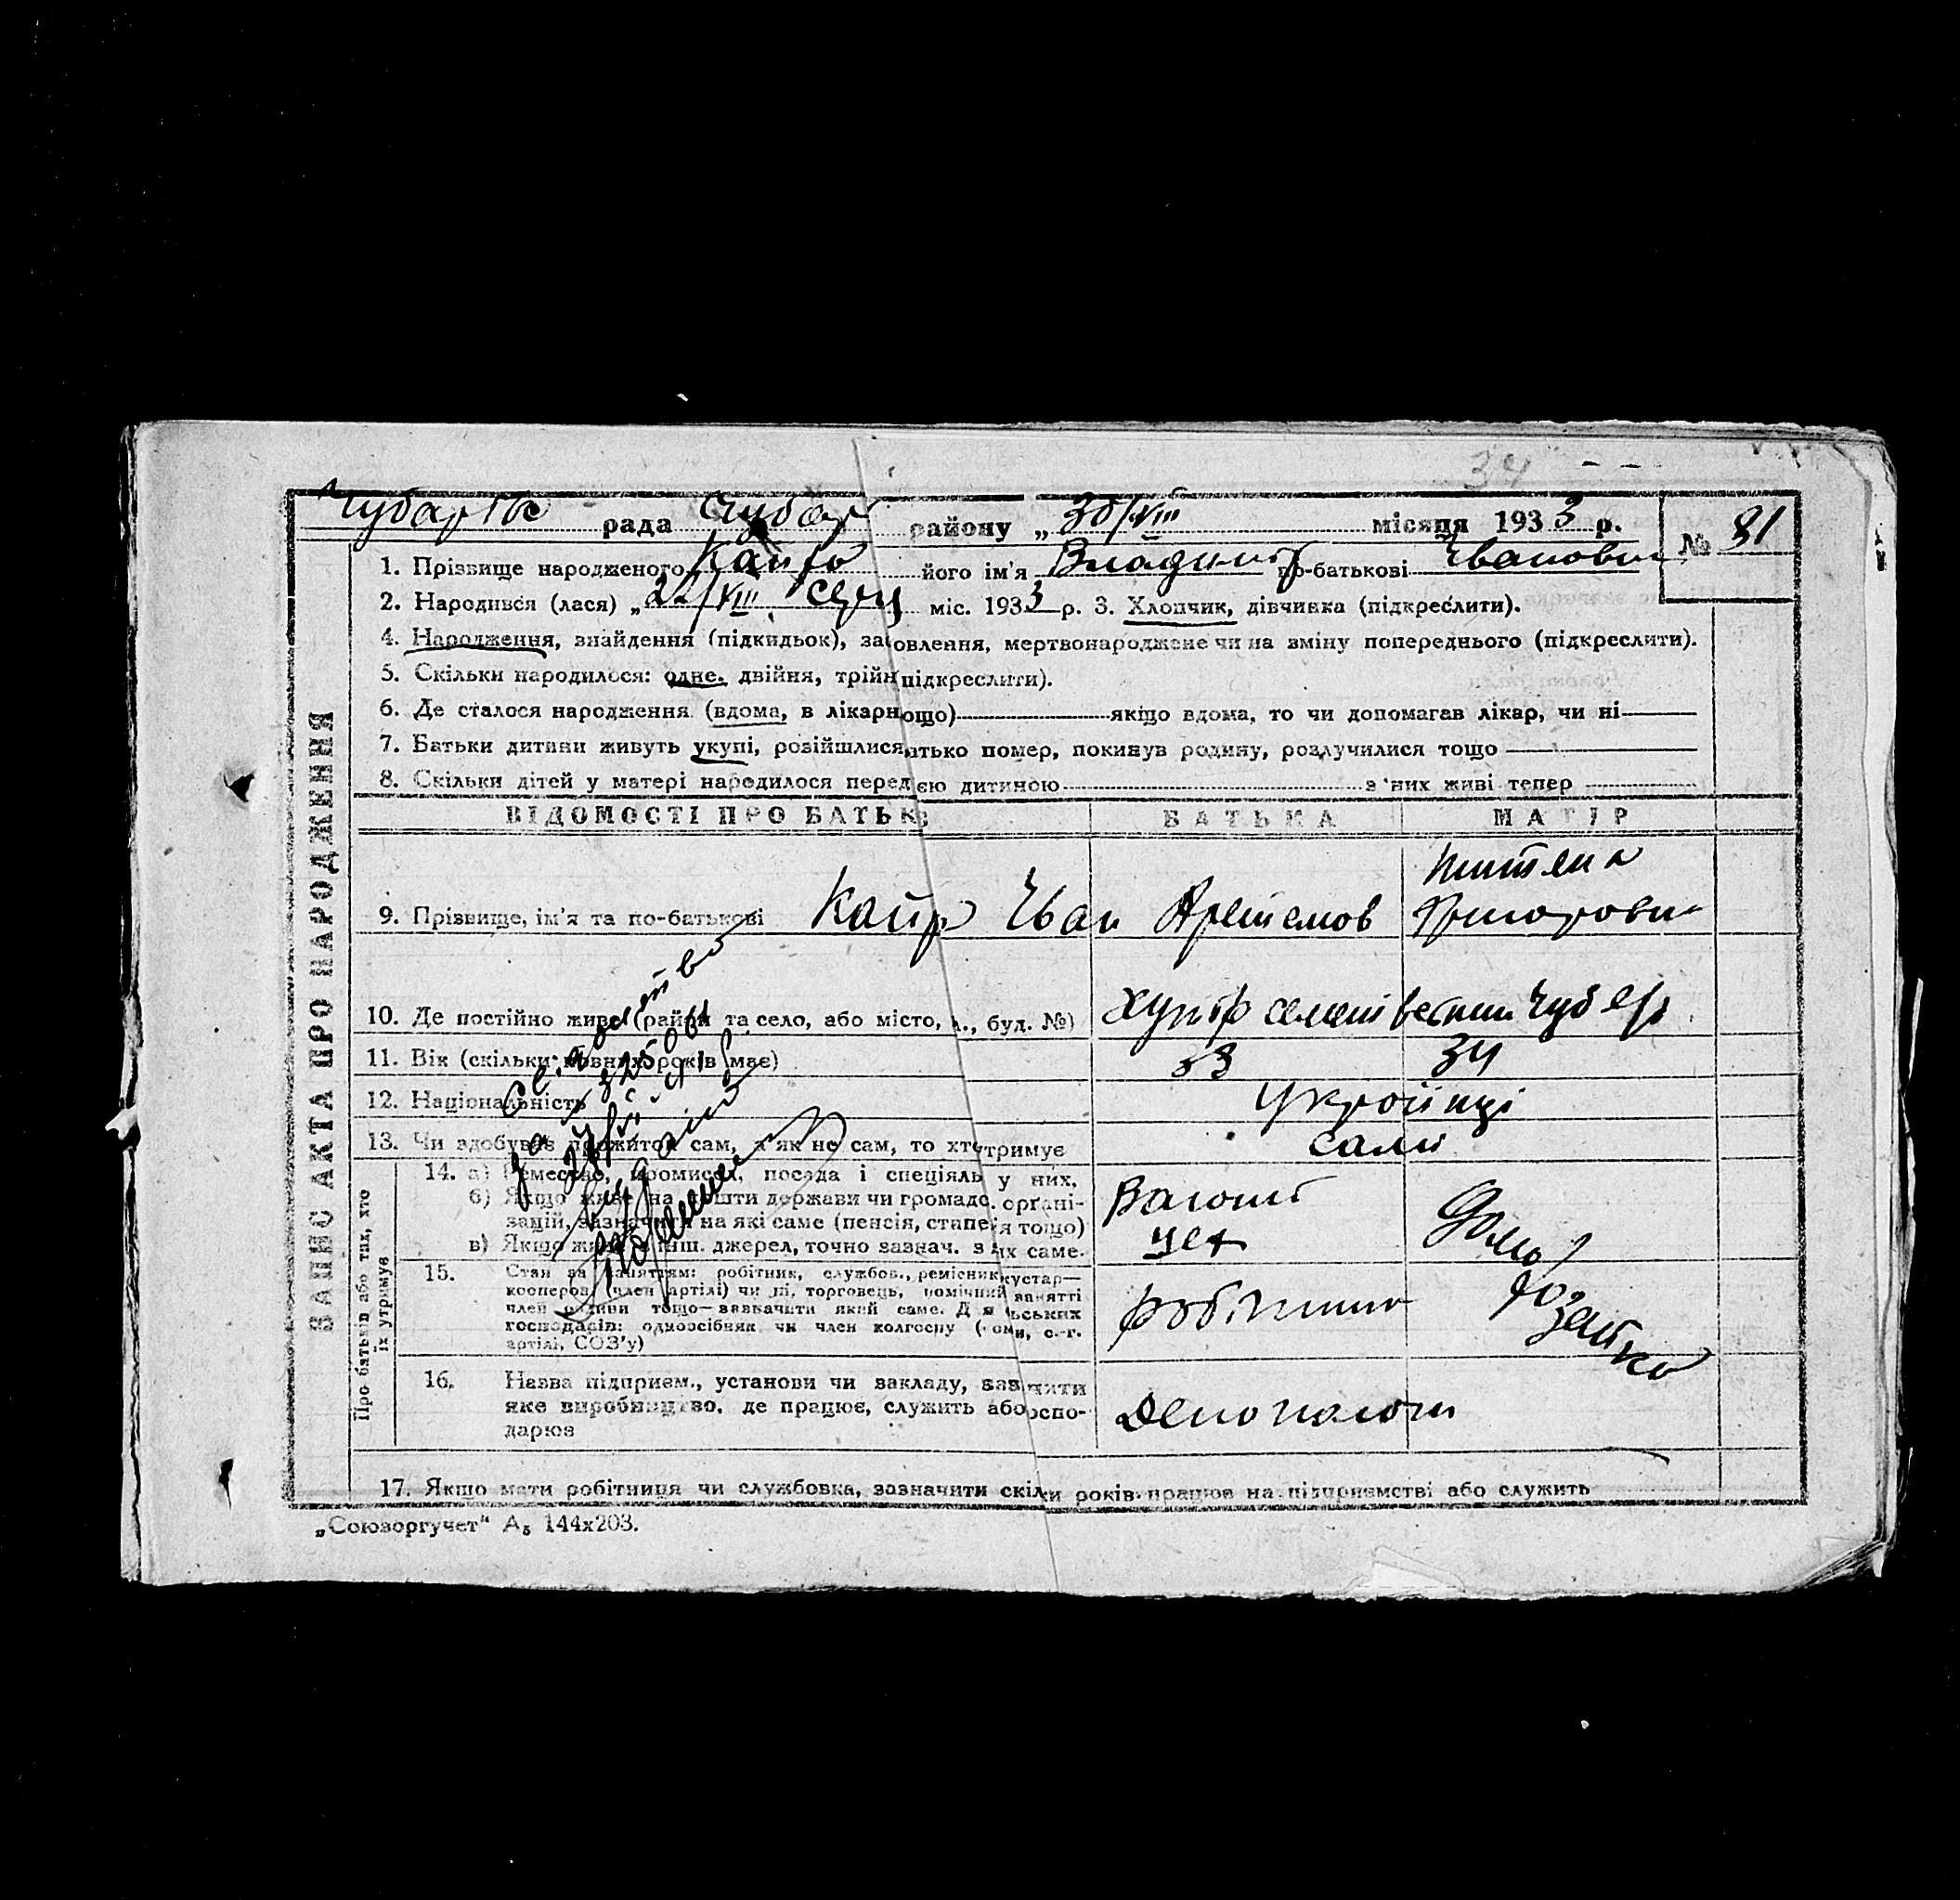 34
рада Чубар району „30/VIII місяця 1933 р. № 81
1. Прізвище народженого Кайро його ім'я Владимир по-батькові Іванови
2. Народився (лася) „22/VIII серп міс. 1933 р. 3. Хлопчик, дівчинка (підкреслити).
4. Народження, знайдення (підкидьок), за овлення, мертвонароджене чи на зміну попереднього (підкреслити).
5. Скільки народилося: одне, двійня, трійн підкреслити).
6. Де сталося народження (вдома, в лікарн ощо) якщо вдома, то чи допомагав лікар, чи ні
7. Батьки дитини живуть укупі, розійшлися, атько помер, покинув родину, розлучилися тощо
8. Скільки дітей у матері народилося перед єю дитиною з них живі тепер
ВІДОМОСТІ ПРО БАТЬК В БАТЬКА МАТІР
9. Прізвище, ім'я та по-батькові Кайро Іван Артемов
10. Де постійно живе (район та село, або місто, л., буд. №) хутір
11. Вік (скільки повних років має) 33 34
12. Національність Українці
13. Чи здобував прожиток сам, а як не сам, то хт утримує сами
14. а) Ремество, промисел, посада і спеціяль у них,
б) Якщо живе на кошти держави чи громадс. органі-
зацій, зазначити на які саме (пенсія, стипе ія тощо)
в) Якщо живе з інш. джерел, точно зазнач. з їх саме.
Вагонн
цех
Дом
хозяйка
15. Стан за заняттям: робітник, службов., ремісник, кустар—
кооперов. (член артілі) чи ні, торговець, помічний занятті
член родини тощо—зазначити який саме. Д я льських
господарів: одноосібник чи член колгоспу ( оми, с.-г.
артілі, СОЗ'у)
робітник
16. Назва підприєм., установи чи закладу, заз чити
яке виробництво, де працює, служить або оспо-
дарює
Депо
17. Якщо мати робітниця чи службовка, зазначити скільки років працює на підприємстві або служить
„Союзоргучет" А₅ 144х203.
ЗАПИС АКТА ПРО НАРОДЖЕННЯ
Про батьків або тих, хто
їх утримує